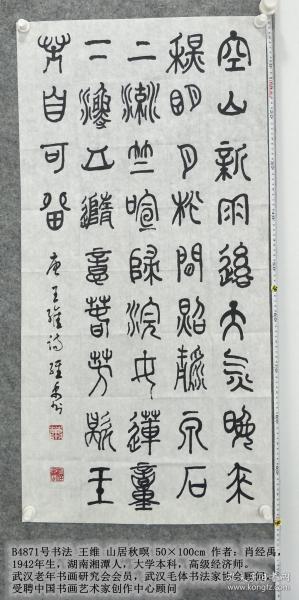 空山新雨後天气晚來
秋明月松間照清泉石
上流竹喧歸浣女蓮動
下漁舟隨意春芳歇王
孫自可留
唐王維詩 經禹书
B4871号书法 王维 山居秋暝 50×100cm 作者：肖经禹，
1942年生，湖南湘潭人，大学本科，高级经济师。
武汉老年书画研究会会员，武汉毛体书法家协会顾问，
受聘中国书画艺术家创作中心顾问